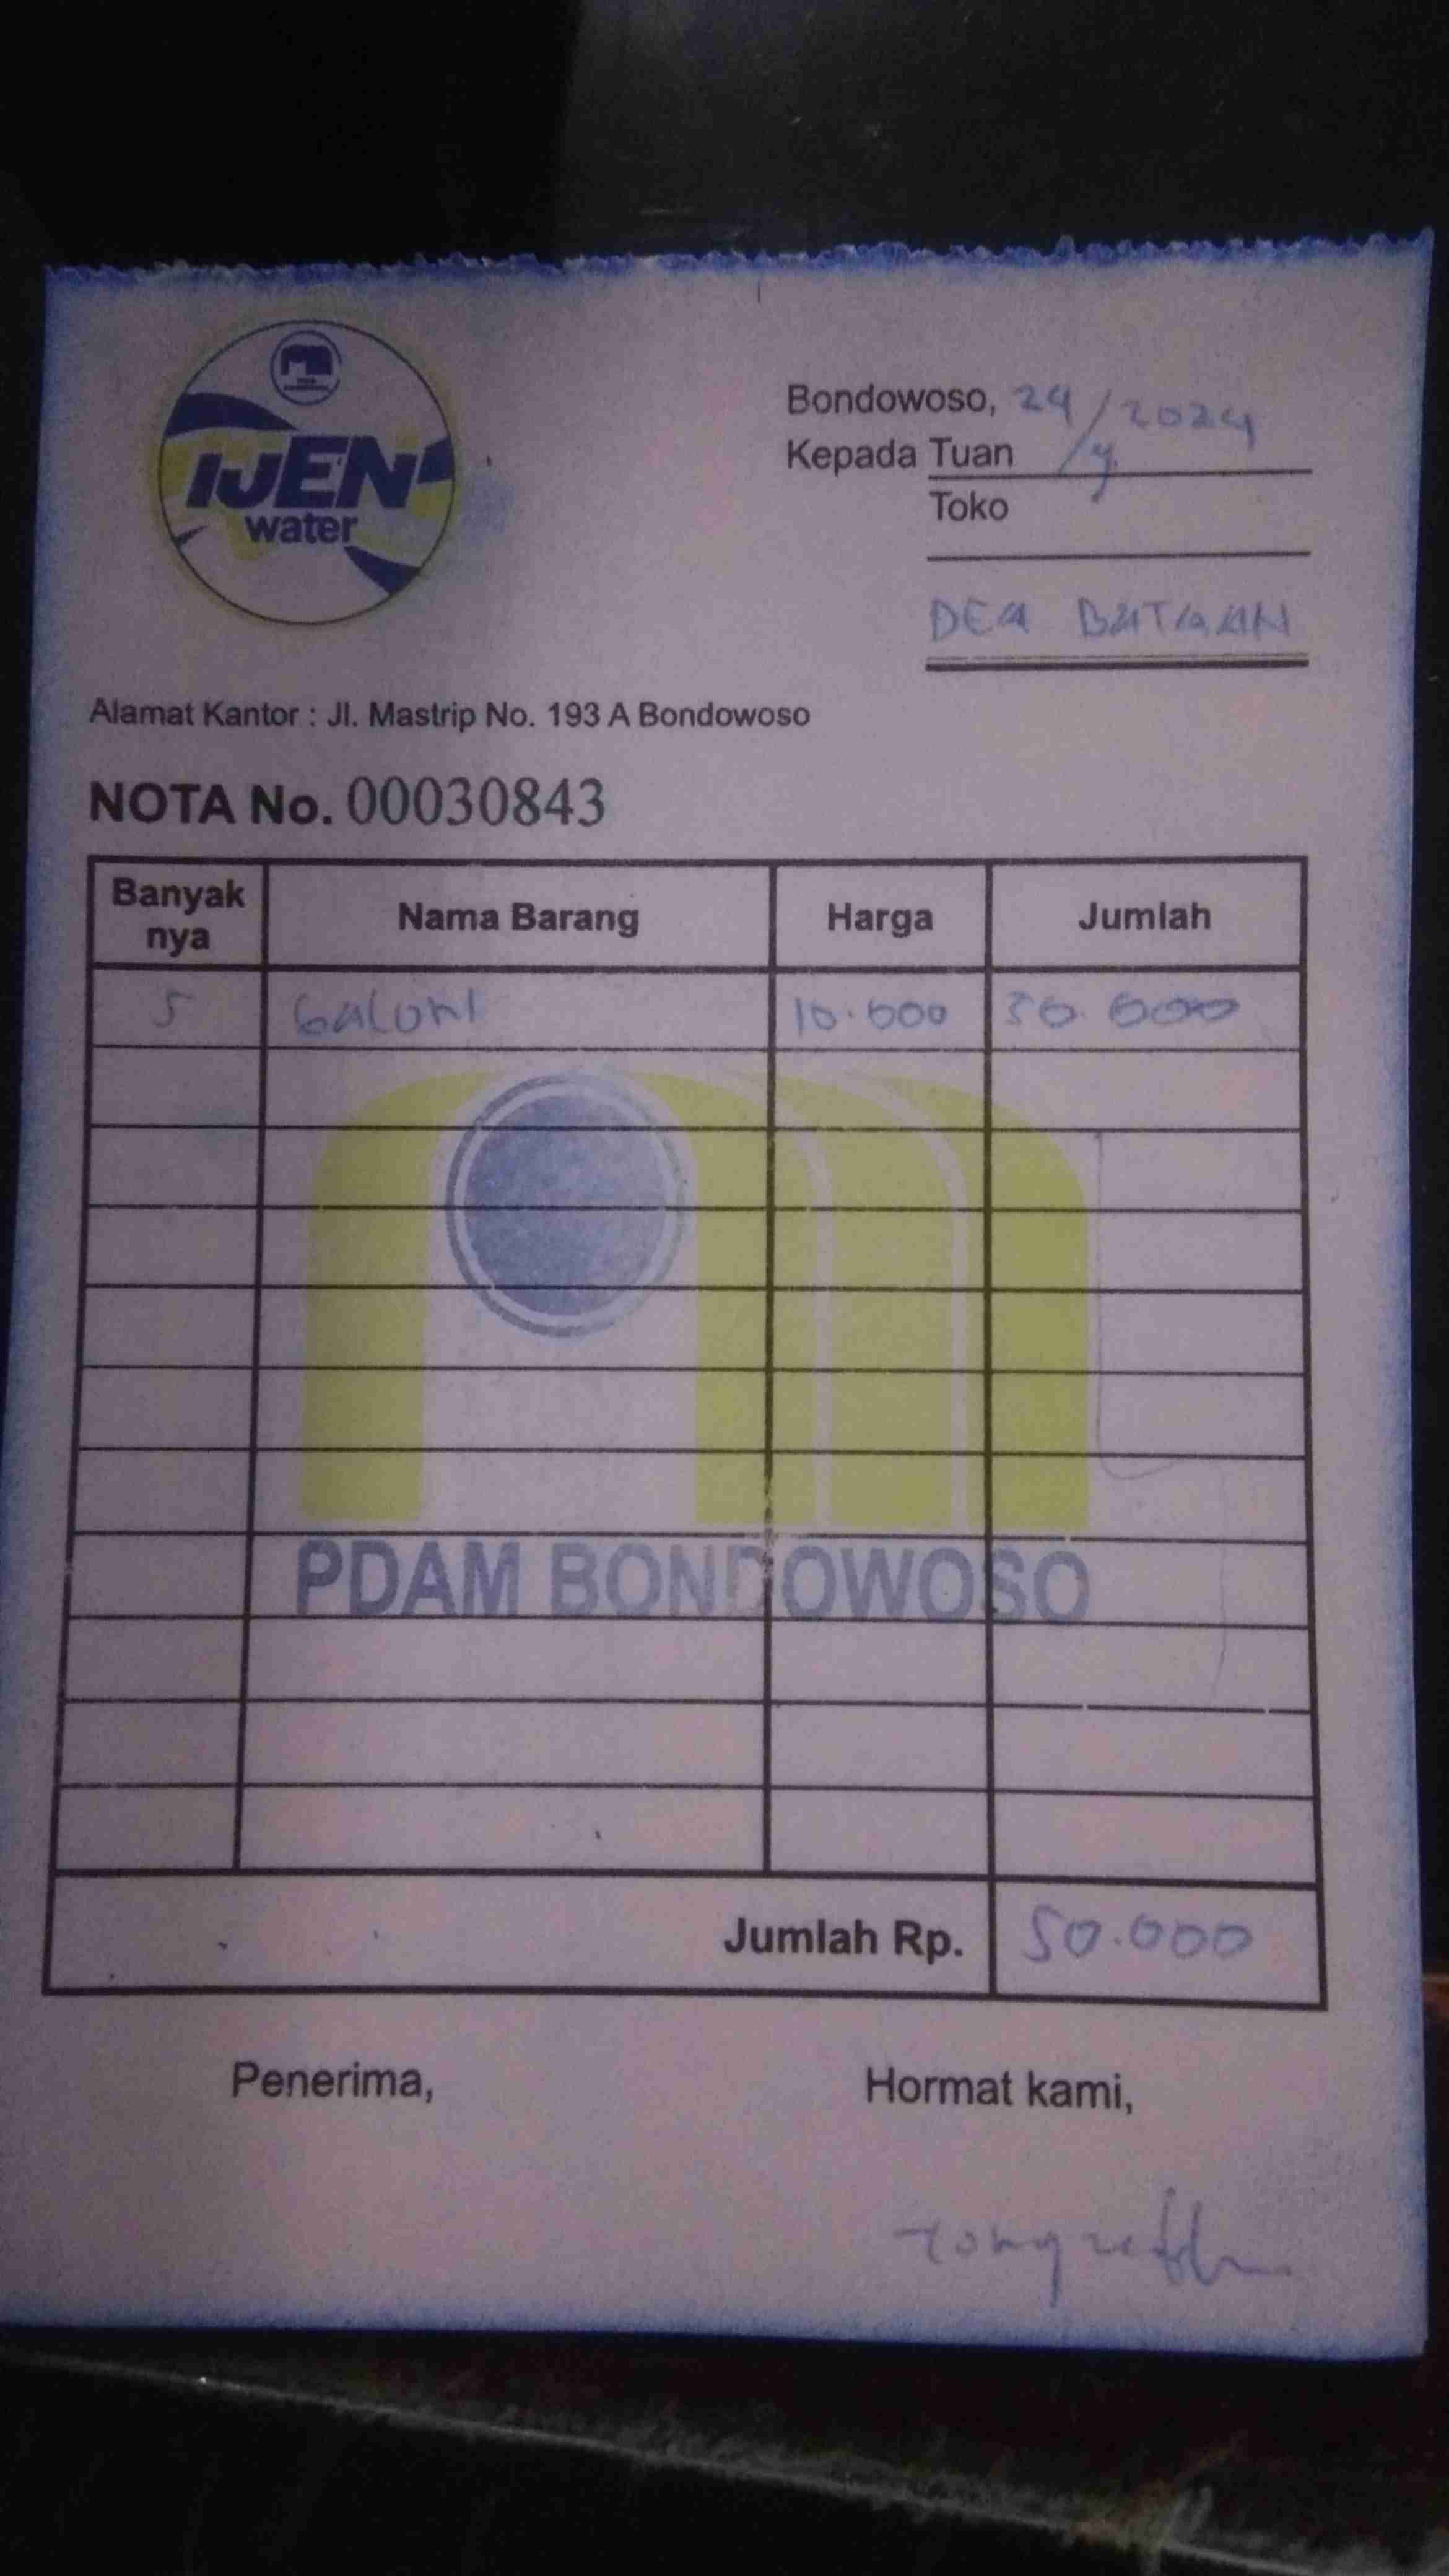 IJEN
water
Bondowoso, 24/
2024
Kepada Tuan
Toko
DEA BATAAN
Alamat Kantor : Jl. Mastrip No. 193 A Bondowoso
NOTA No. 00030843
Banyak
nya
Nama Barang
Harga
Jumlah
5 Galon 10.000 50.000
PDAM BONDOWOSO
Jumlah Rp. 50.000
Penerima,
Hormat kami,